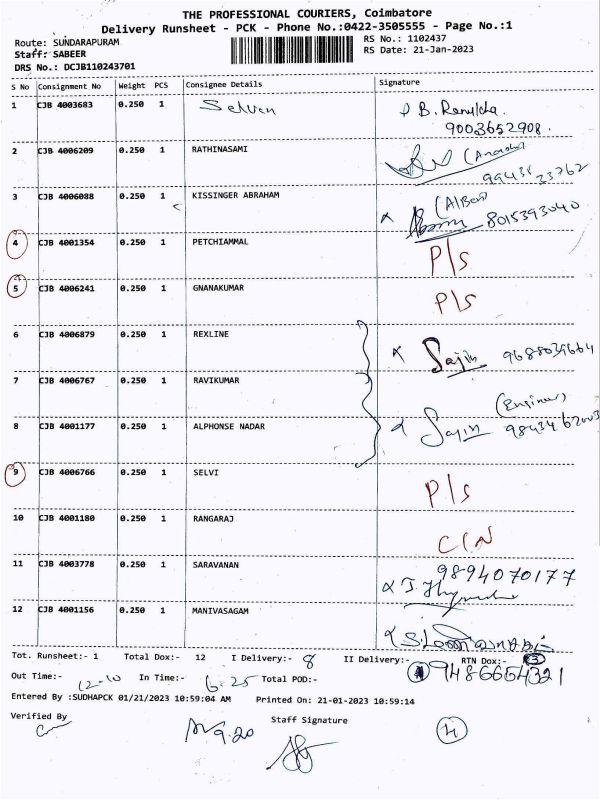 THE PROFESSIONAL COURIERS, Coimbatore
Delivery Runsheet - PCK - Phone No.:0422-3505555 - Page No.:1
Route: SUNDARAPURAM
RS No.: 1102437
Staff: SABEER
RS Date: 21-Jan-2023
DRS No.: DCJB110243701
S No Consignment No Weight PCS Consignee Details Signature
1 CJB 4003683 0.250 1 Selven B. Renukha
9003652908.
2 CJB 4006209 0.250 1 RATHINASAMI
3 CJB 4006088 0.250 1 KISSINGER ABRAHAM (Albert) 8015393040
4 CJB 4001354 0.250 1 PETCHIAMMAL P/s
5 CJB 4006241 0.250 1 GNANAKUMAR P/s
6 CJB 4006879 0.250 1 REXLINE Sajin
7 CJB 4006767 0.250 1 RAVIKUMAR
(Engineer)
8 CJB 4001177 0.250 1 ALPHONSE NADAR Sajin
9 CJB 4006766 0.250 1 SELVI P/s
10 CJB 4001180 0.250 1 RANGARAJ C/N
11 CJB 4003778 0.250 1 SARAVANAN 9894070177
12 CJB 4001156 0.250 1 MANIVASAGAM
Tot. Runsheet:- 1 Total Dox:- 12 I Delivery:- 8 II Delivery:- RTN Dox:- 3
9486654321
Out Time:- 12-10 In Time:- 6-25 Total POD:-
Entered By :SUDHAPCK 01/21/2023 10:59:04 AM Printed On: 21-01-2023 10:59:14
Verified By Staff Signature
9.20